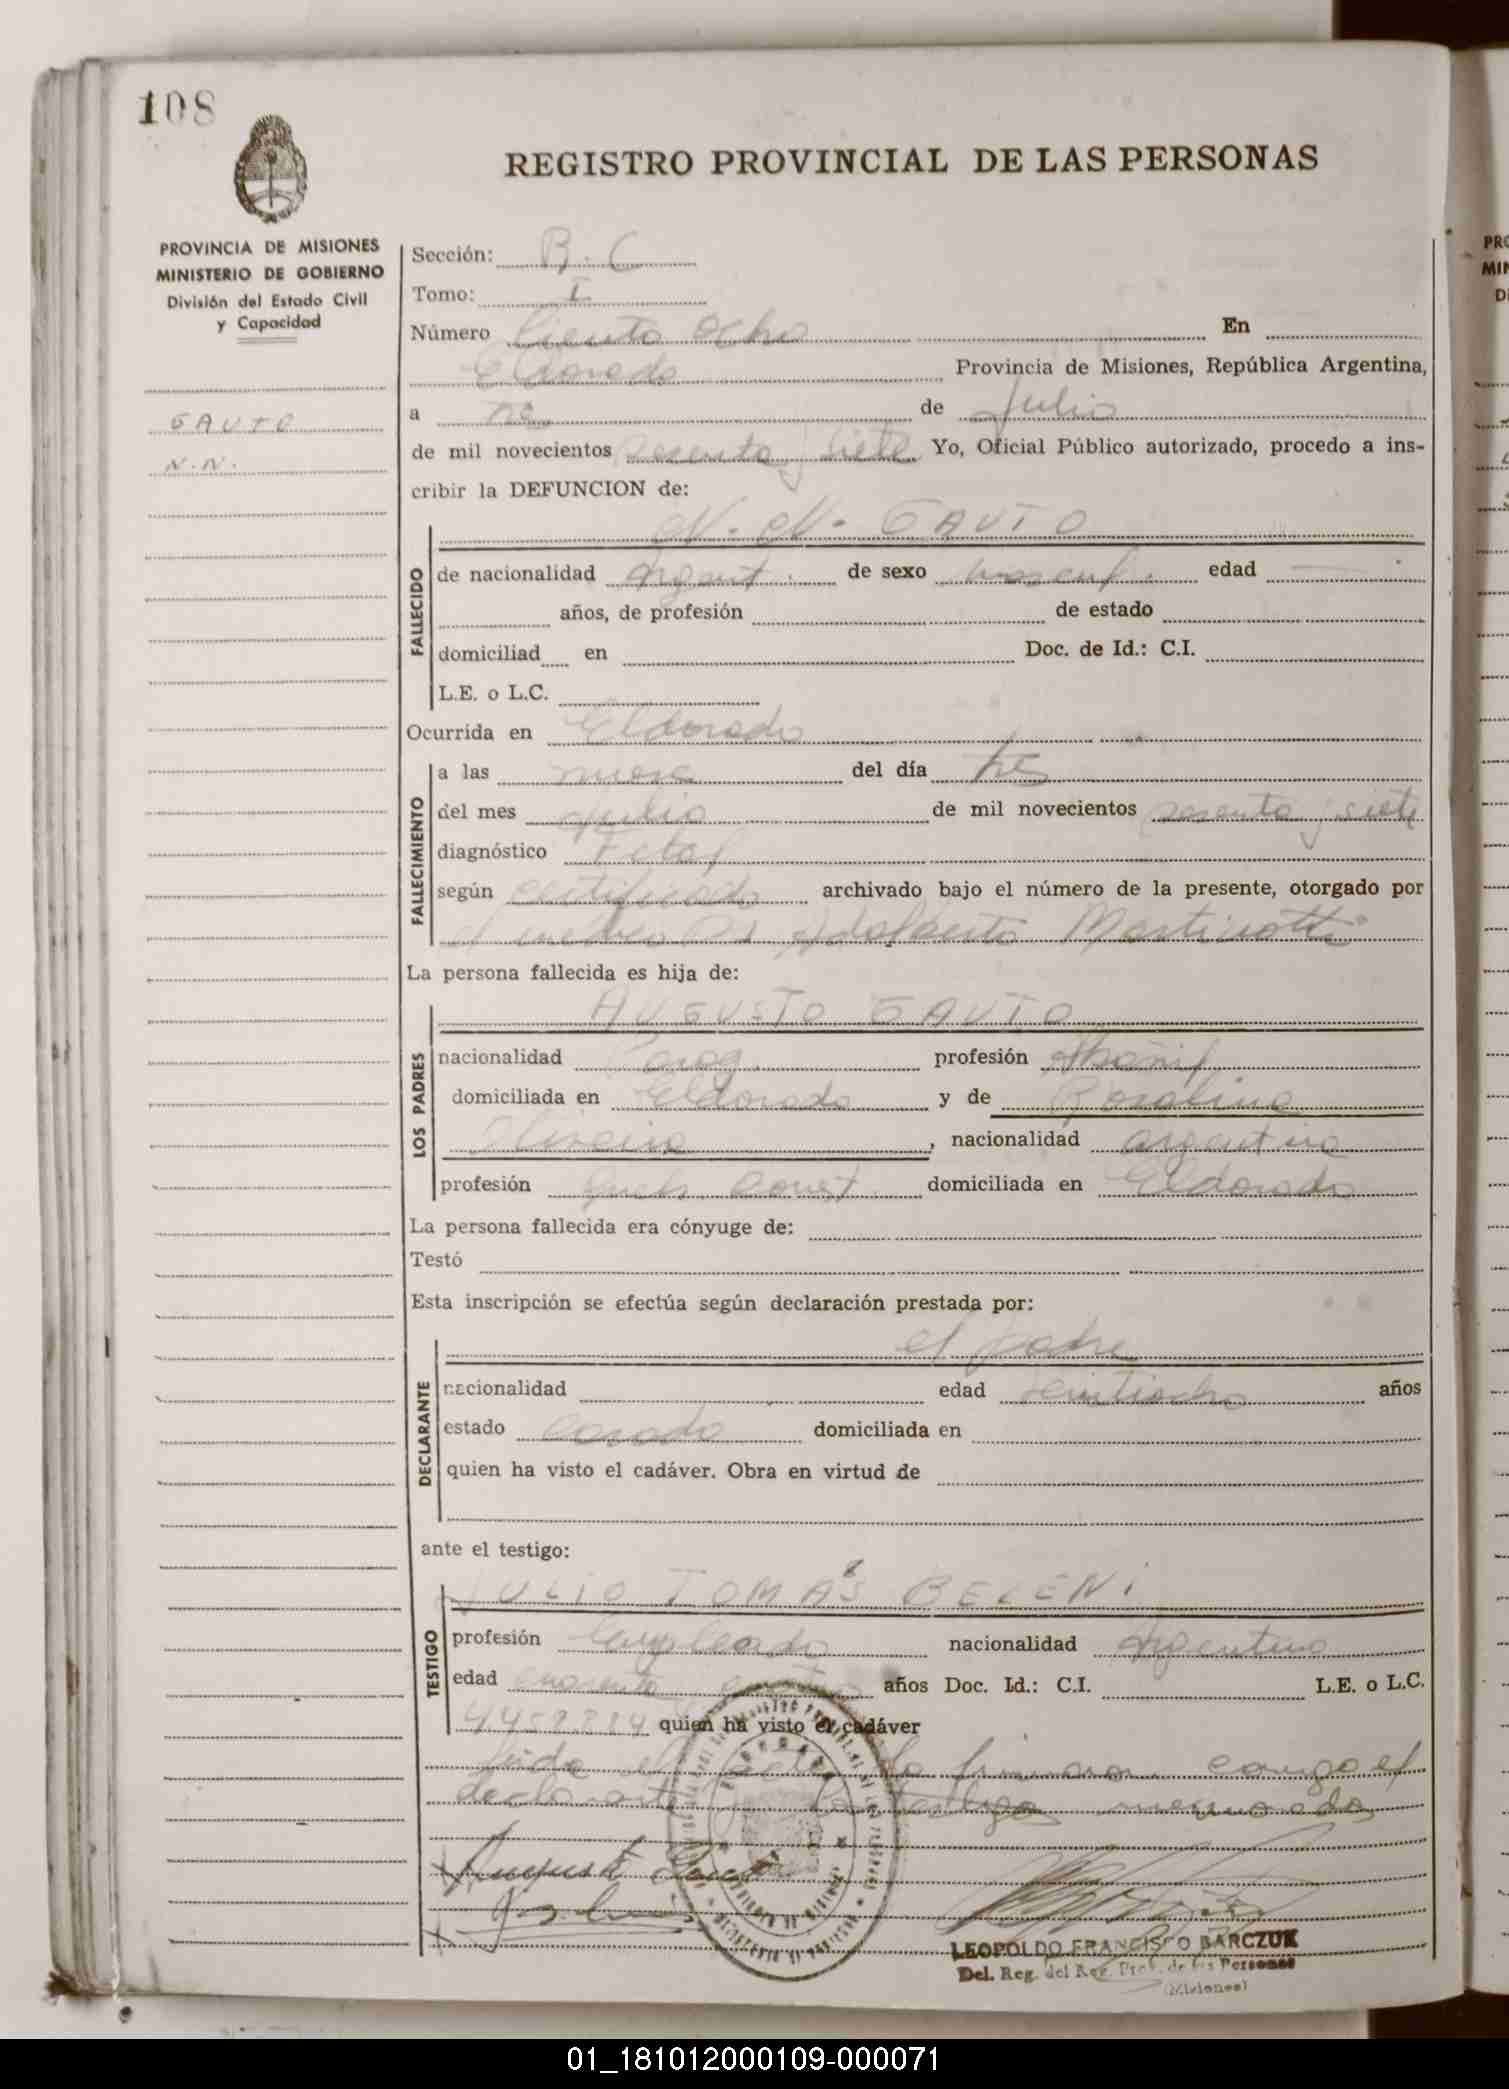 108
REGISTRO PROVINCIAL DE LAS PERSONAS
PROVINCIA DE MISIONES
MINISTERIO DE GOBIERNO
División del Estado Civil
y Capacidad
GAUTO
N.N.
Sección: B.C
Tomo: I
Número Ciento ocho En
Eldorado Provincia de Misiones, República Argentina,
a tres de Julio
de mil novecientos sesenta y siete Yo, Oficial Público autorizado, procedo a ins-
cribir la DEFUNCION de:
N. N. GAUTO
FALLECIDO
de nacionalidad Argent. de sexo mascul. edad
años, de profesión de estado
domiciliad en Doc. de Id.: C.I.
L.E. o L.C.
Ocurrida en Eldorado
FALLECIMIENTO
a las nueve del día tres
del mes Julio de mil novecientos sesenta y siete
diagnóstico Fetal
según certificado archivado bajo el número de la presente, otorgado por
el médico Dr Adalberto Martinotti
La persona fallecida es hija de:
AUGUSTO GAUTO
LOS PADRES
nacionalidad Parag. profesión Albañil
domiciliada en Eldorado y de Rosalina
Oliveira, nacionalidad argentina
profesión domiciliada en Eldorado
La persona fallecida era cónyuge de:
Testó
Esta inscripción se efectúa según declaración prestada por:
el padre
DECLARANTE
nacionalidad edad veintiocho años
estado casado domiciliada en
quien ha visto el cadáver. Obra en virtud de
ante el testigo:
JULIO TOMÁS BELENI
TESTIGO
profesión Empleado nacionalidad Argentina
edad cuarenta años Doc. Id.: C.I. L.E. o L.C.
quien ha visto el cadáver
Leida el acta la firman conmigo el
declarante y testigo mencionado
August Gauto
LEOPOLDO FRANCISCO BARCZUK
Del. Reg. del Reg. Prov. de las Personas
(Misiones)
01_181012000109-000071